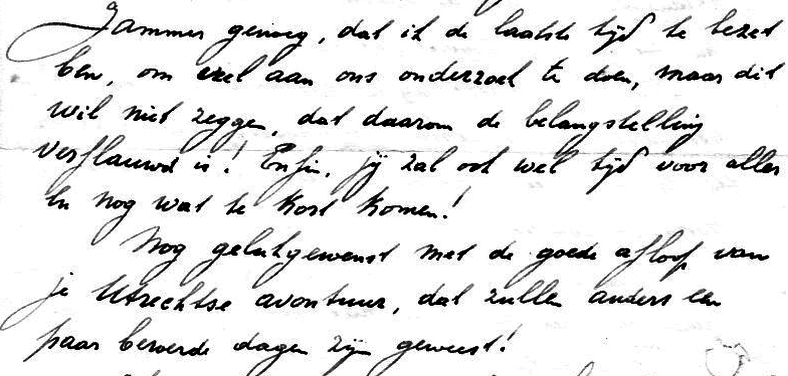 Jammer genoeg, dat ik de laatste tijd te bezet
ben, om veel aan ons onderzoek te doen, maar dit
wil niet zeggen, dat daarom de belangstelling
verflauwd is! Enfin, jij zal ook wel tijd voor alles
en nog wat te kort komen!
Nog gelukgewenst met de goede afloop van
je Utrechtse avontuur, dat zullen anders een
paar beroerde dagen zijn geweest!